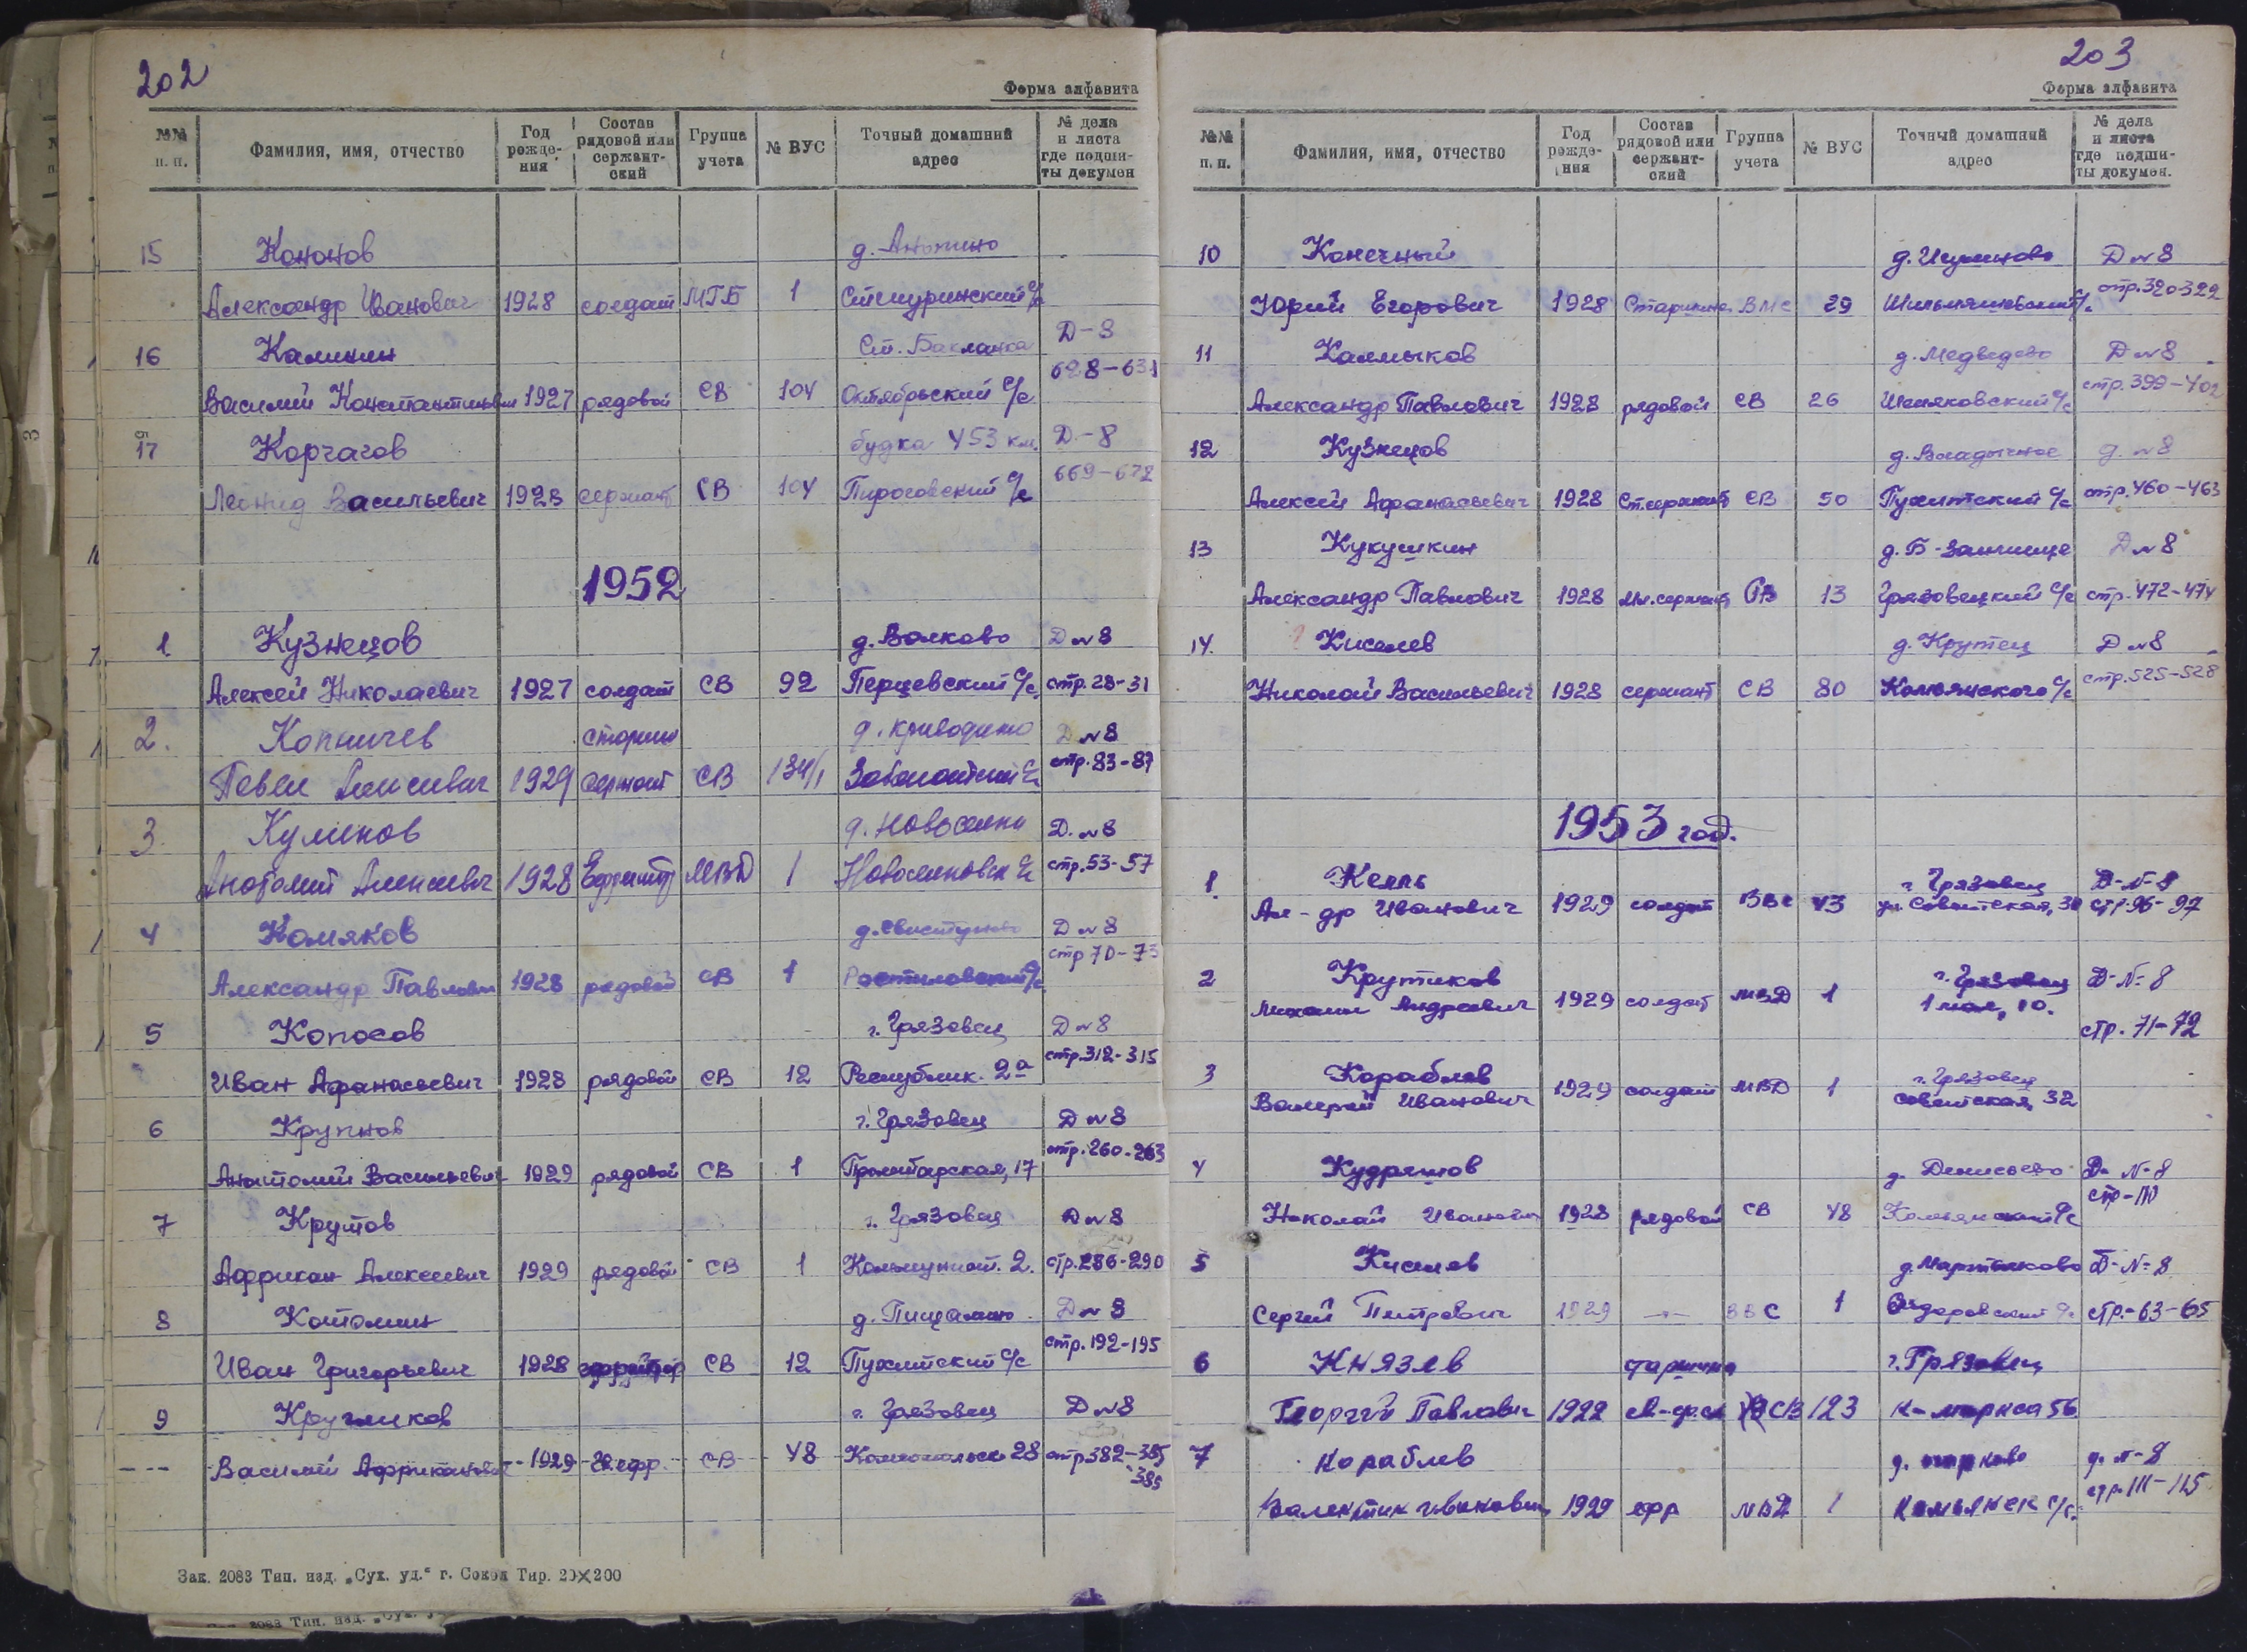 202
Форма алфавита
№№ п. п. Фамилия, имя, отчество Год рожде- ния Состав рядовой или сержант- ский Группа учета № ВУС Точный домашний адрес № дела и листа где подши- ты докумен
15 Кононов д. Анохино
Александр Иванович 1928 солдат МГБ 1
16 Калинин Ст. Бакланка Д-8
Василий Константинович 1927 рядовой СВ 104 Октябрьский с/с 628-631
17 Корчагов будка 453 км. Д-8
Леонид Васильевич 1928 сержант СВ 104 Пироговский с/с 669-672
1952
1 Кузнецов д. Волково Д№8
Алексей Николаевич 1927 солдат СВ 92 Перцевский с/с стр. 28-31
2. Копничев старш д. Криводино Д№8
Павел 1929 сержант СВ 134/1 стр. 83-87
3 Куликов д. Новоселки Д.№8
Анатолий Алексеевич 1928 Ефрейтор МВД 1 стр. 53-57
4 Комяков д. Свистуново Д№8
Александр Павлович 1928 рядовой СВ 1 Ростиловский с/с стр 70-73
5 Копосов г. Грязовец Д№8
Иван Афанасьевич 1928 рядовой СВ 12 Республик. 2а стр. 312-315
6 Крупнов г. Грязовец Д№8
Анатолий Васильевич 1929 рядовой СВ 1 стр. 260-263
7 Крутов г. Грязовец Д№8
Африкан Алексеевич 1929 рядовой СВ 1 Коммунист. 2. стр. 286-290
8 Котомин д. Пищалино Д№8
Иван Григорьевич 1928 ефрейтор СВ 12 Пухитский с/с стр. 192-195
9 Кругликов г. Грязовец Д№8
Василий Африканович 1929 СВ 48 28 стр 382-385
385
Зак. 2083 Тип. изд. „Сух. уд.“ г. Сокол Тир. 20×200
203
Форма алфавита
№№ п. п. Фамилия, имя, отчество Год рожде- ния Состав рядовой или сержант- ский Группа учета № ВУС Точный домашний адрес № дела и листа где подши- ты докумен.
10 Конечный Д№8
Юрий Егорович 1928 Старшина ВМС 29 стр. 320-322
11 Калмыков д. Медведево Д№8
Александр Павлович 1928 рядовой СВ 26 стр. 399-402
12 Кузнецов д. Владычное Д.№8
Алексей Афанасьевич 1928 Ст. сержант СВ 50 Пухитский с/с стр. 460-463
13 Кукушкин Д№8
Александр Павлович 1928 мл. сержант СВ 13 Грязовецкий с/с стр. 472-474
14. Киселев д. Крутец Д№8
Николай Васильевич 1928 сержант СВ 80 Комьянского с/с стр. 525-528
1953 год.
1 Келль г. Грязовец Д-№-8
Ал-др Иванович 1929 солдат ВВС 43 ул. Советская, 30 стр 96-97
2 Крутиков г. Грязовец Д-№-8
Михаил Андреевич 1929 солдат МВД 1 1 мая, 10. стр. 71-72
3 Кораблев г. Грязовец
Валерий Иванович 1929 солдат МВД 1 Советская, 32
4 Кудряшов д. Денисьево Д-№-8
Николай Иванович 1928 рядовой СВ 48 Комьянский с/с стр-110
5 Киселев Д-№-8
Сергей Петрович 1929 -"- ВВС 1 стр.-63-65
6 Князев старшина г. Грязовец
Георгий Павлович 1922 СВ 123 К-маркса 56
7 Кораблев д. №-8
Валентин Иванович 1929 ефр МВД 1 Комьянск с/с. стр. 111-115